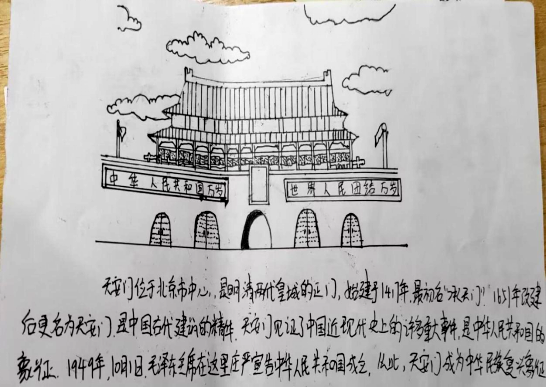 中华人民共和国万岁
世界人民团结万岁
天安门位于北京市中心,是明清两代皇城的正门,始建于1417年,最初名"承天门"。1651年改建
后更名为天安门,是中国古代建筑的精粹。天安门见证了中国近现代史上的许多重大事件,是中华人民共和国的
象征。1949年,10月1日毛泽东主席在这里庄严宣告中华人民共和国成立,从此,天安门成为中华民族复兴象征